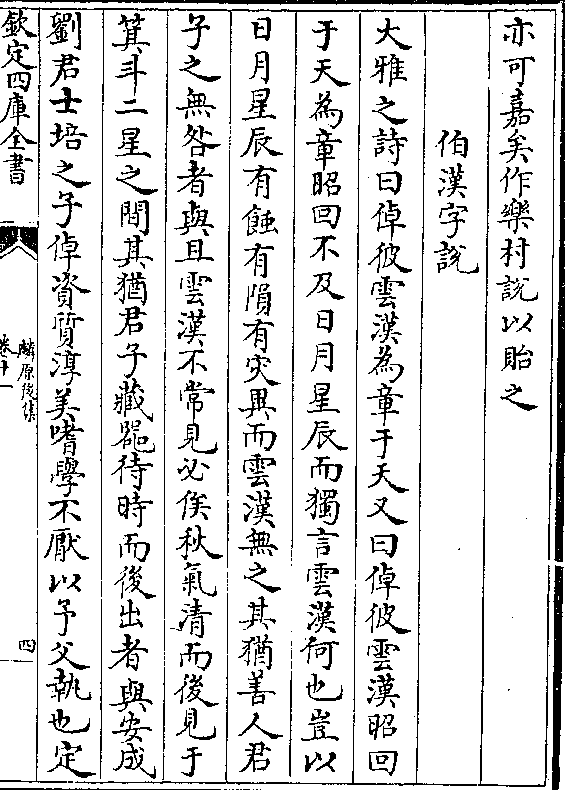 亦可嘉矣作樂村說以貽之
伯漢字說
大雅之詩曰倬彼雲漢為章于天又曰倬彼雲漢昭回
于天為章昭回不及日月星辰而獨言雲漢何也豈以
日月星辰有蝕有隕有灾異而雲漢無之其猶善人君
子之無咎者與且雲漢不常見必俟秋氣清而後見于
箕斗二星之間其猶君子藏器待時而後出者與安成
劉君士培之子倬資質淳美嗜學不厭以予父執也定
欽定四庫全書
麟原後集
卷十一
四